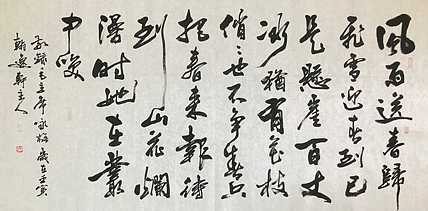 風雨送春歸
飛雪迎春到已
是懸崖百丈
冰猶有花枝
俏々也不爭春只
把春來報待
到山花爛
漫時她在叢
中笑
敬録毛主席詠梅歲在壬寅
翰軒主人